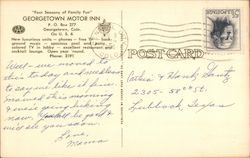 "Four Seasons of Family Fun"
GEORGETOWN MOTOR INN
P. O. Box 277
Georgetown, Colo.
On U. S. 6
New luxurious units - phones - free TV - back-
ground music - spacious pool and patio -
colored TV in lobby - excellent restaurant and
cocktail lounge. Open year 'round.
Phone: 3191
POST CARD
Well - we moved to
this today and needless
to say we like it fine.
moved this morning
and
now. You'll be glad
will see you soon.
Love,
Mama
2305 - 58th St.
Lubbock, Texas